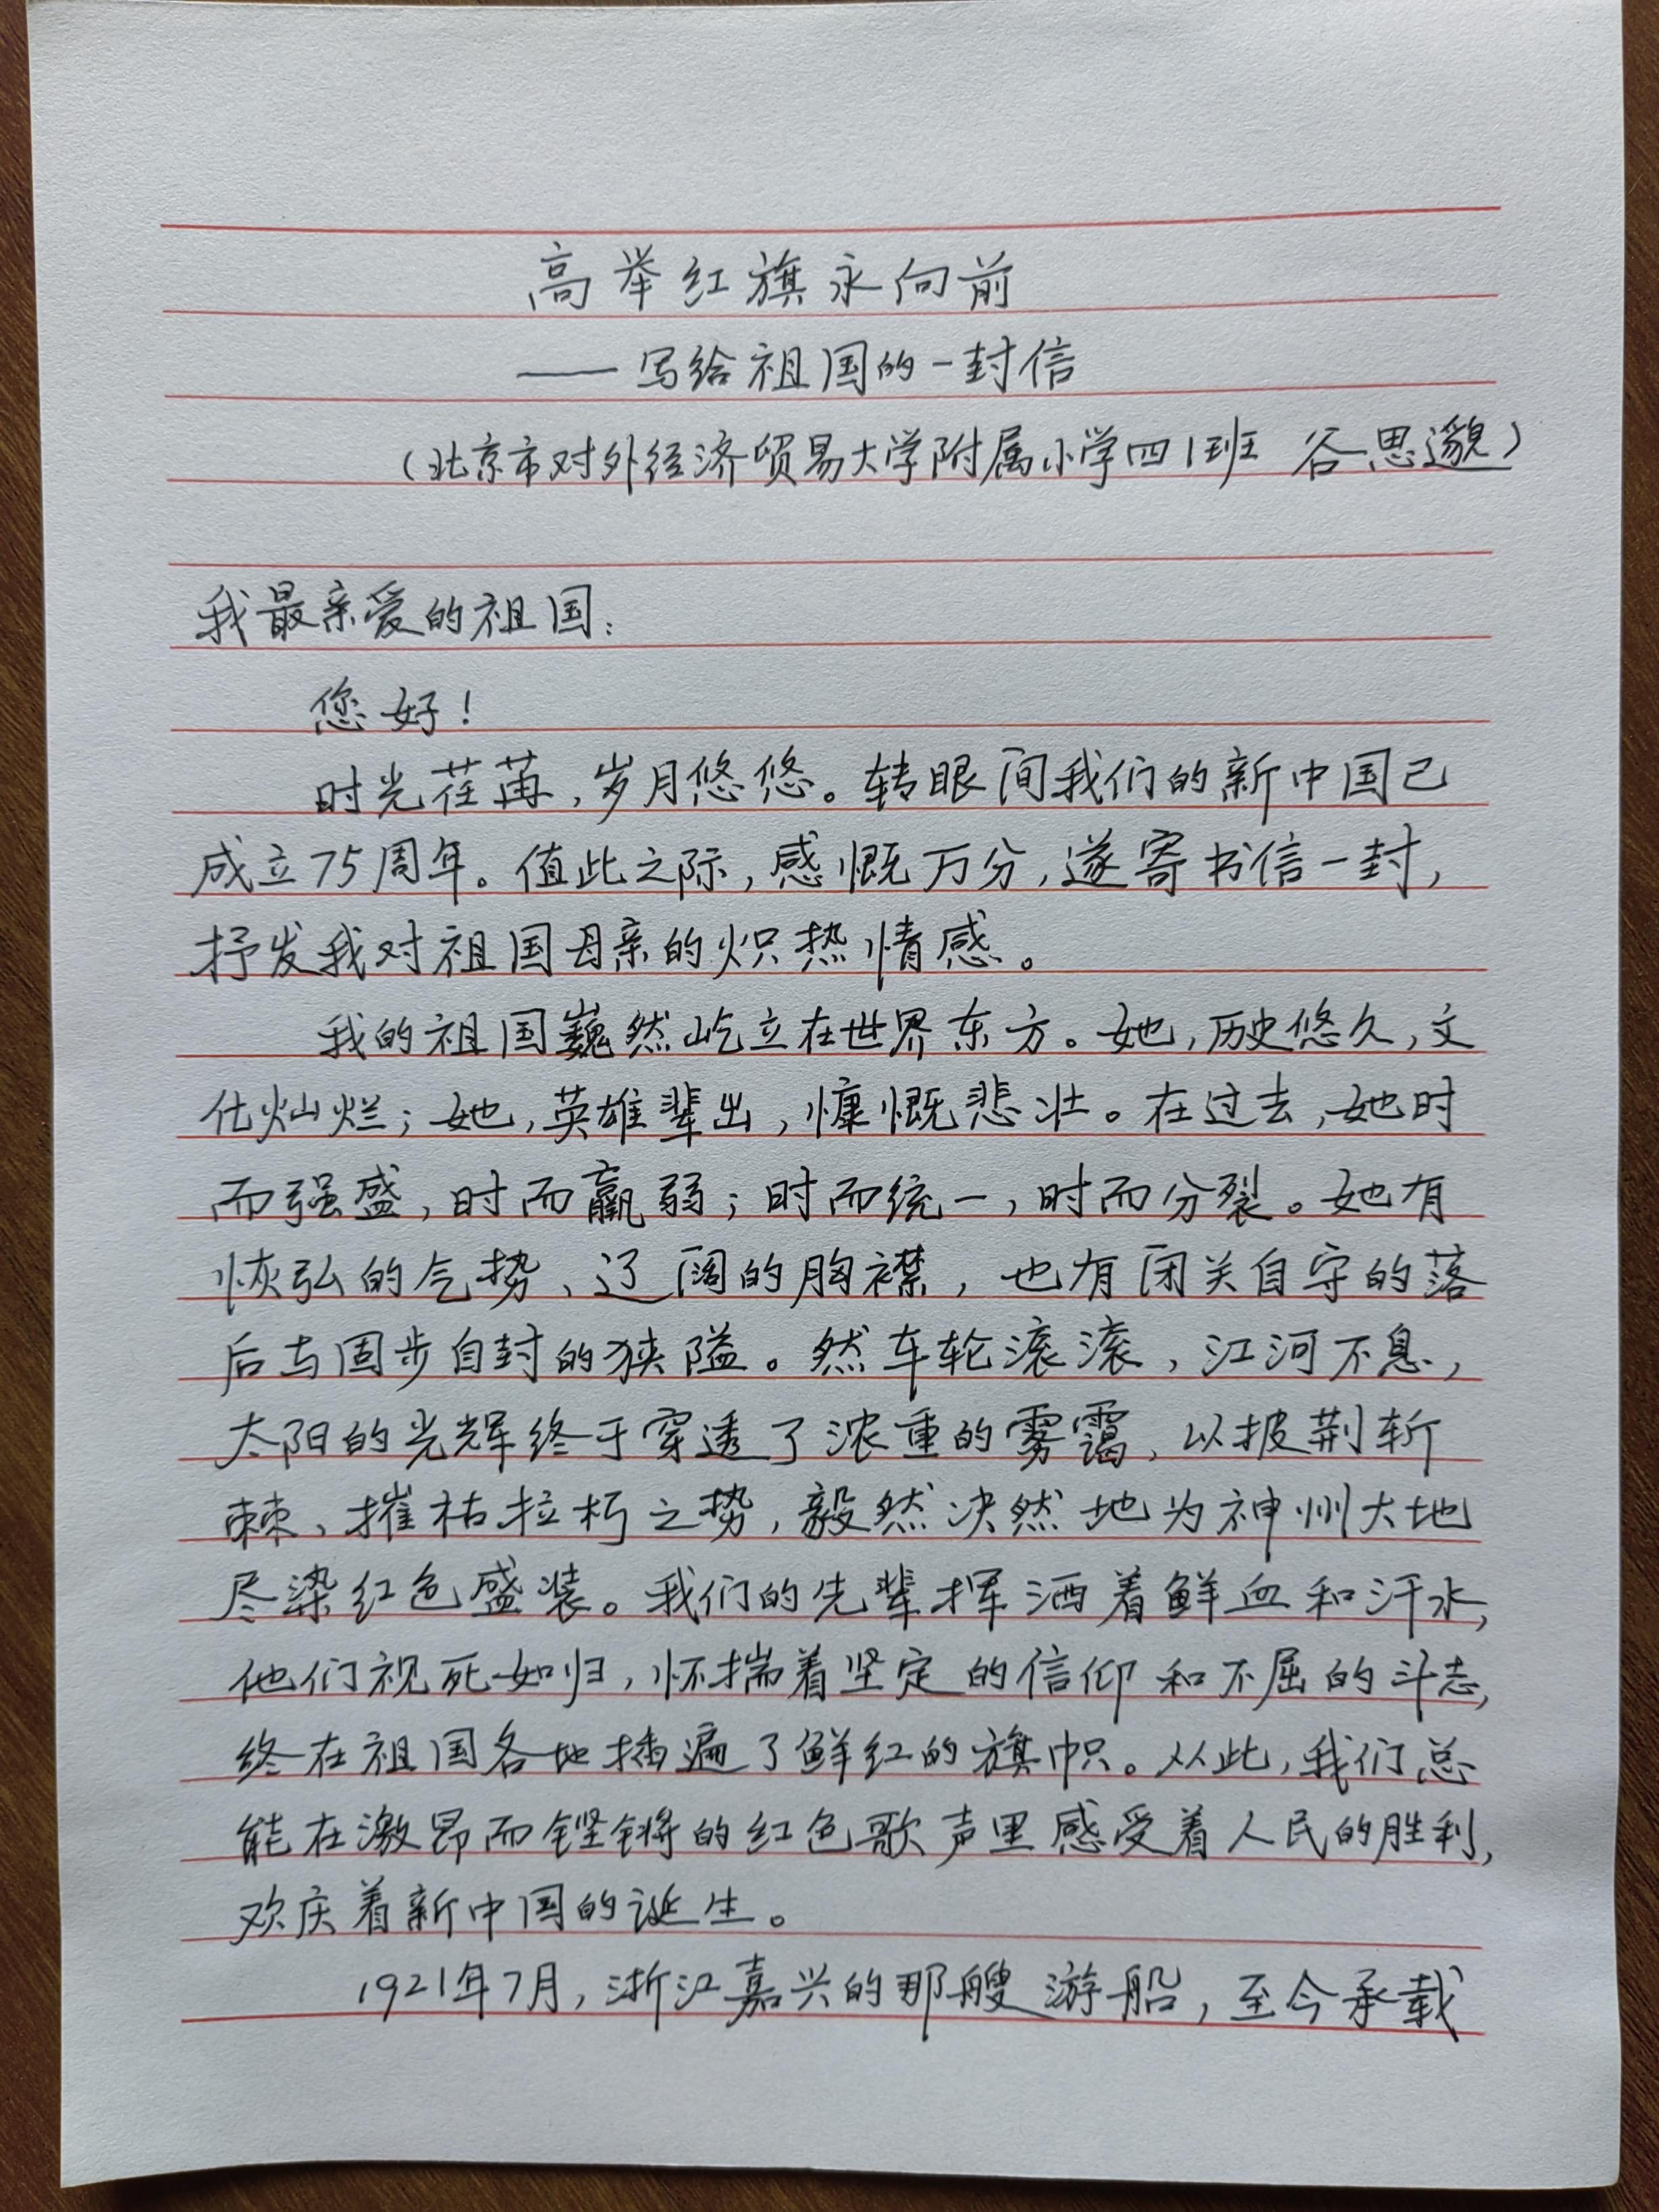 高举红旗永向前
——写给祖国的一封信
（北京市对外经济贸易大学附属小学四1班 谷思邈）
我最亲爱的祖国：
您好！
时光荏苒，岁月悠悠。转眼间我们的新中国已
成立75周年。值此之际，感慨万分，遂寄书信一封，
抒发我对祖国母亲的炽热情感。
我的祖国巍然屹立在世界东方。她，历史悠久，文
化灿烂；她，英雄辈出，慷慨悲壮。在过去，她时
而强盛，时而羸弱；时而统一，时而分裂。她有
恢弘的气势、辽阔的胸襟，也有闭关自守的落
后与固步自封的狭隘。然车轮滚滚，江河不息，
太阳的光辉终于穿透了浓重的雾霭，以披荆斩
棘、摧枯拉朽之势，毅然决然地为神州大地
尽染红色盛装。我们的先辈挥洒着鲜血和汗水，
他们视死如归，怀揣着坚定的信仰和不屈的斗志，
终在祖国各地插遍了鲜红的旗帜。从此，我们总
能在激昂而铿锵的红色歌声里感受着人民的胜利，
欢庆着新中国的诞生。
1921年7月，浙江嘉兴的那艘游船，至今承载